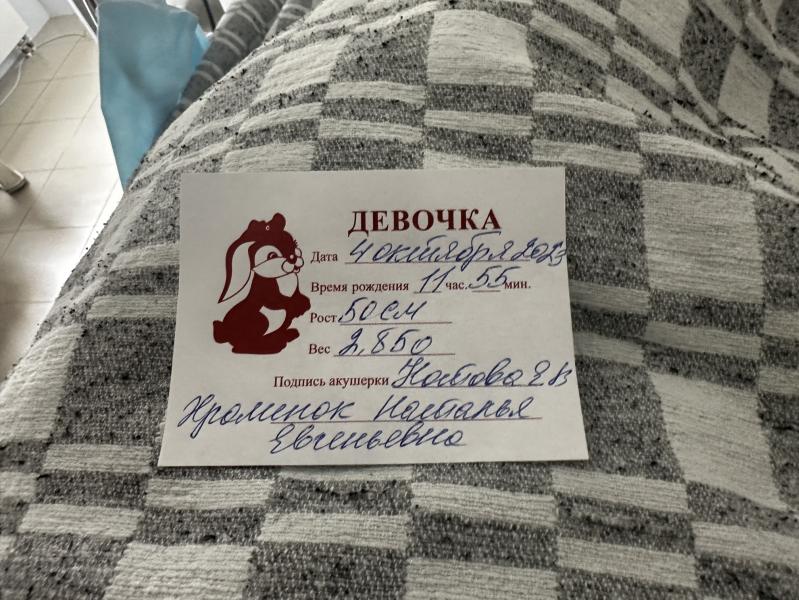 ДЕВОЧКА
Дата 4 октября 2023
Время рождения 11 час. 55 мин.
Рост 50 см
Вес 2,850
Подпись акушерки Катова Е В
Хроменок Наталья
Евгеньевна